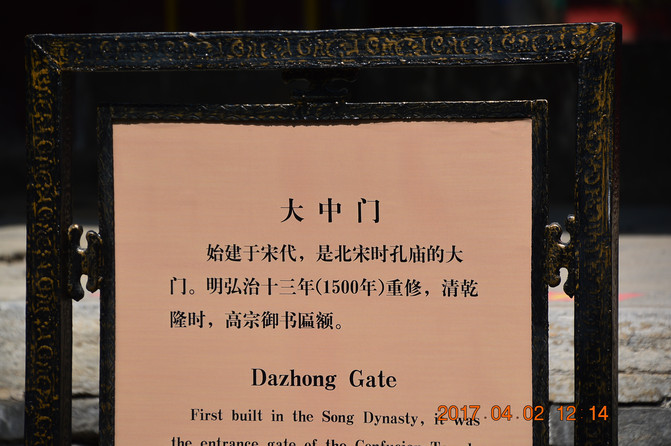 大中门
始建于宋代，是北宋时孔庙的大
门。明弘治十三年(1500年)重修，清乾
隆时，高宗御书匾额。
Dazhong Gate
First built in the Song Dynasty, it was
the entrance gate of the Confucius Temple
2017.04.02 12 14